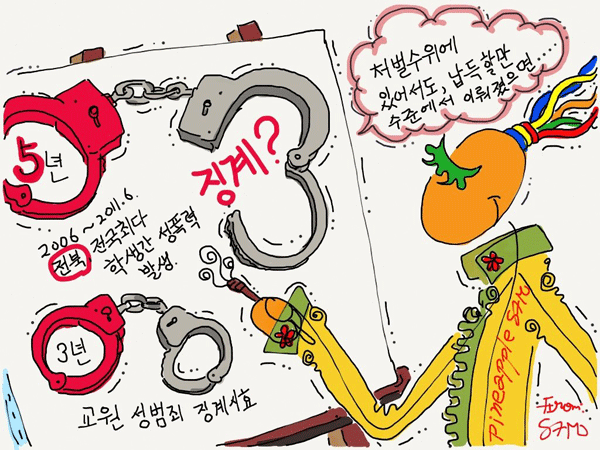 처벌수위에
있어서도, 납득할만
수준에서 이뤄졌으면...
5년
징계?
2006~2011.6.
전북 전국최다
학생간 성폭력
발생.
3년
교원 성범죄 징계시효
Pineapple SAM
From.
SAM